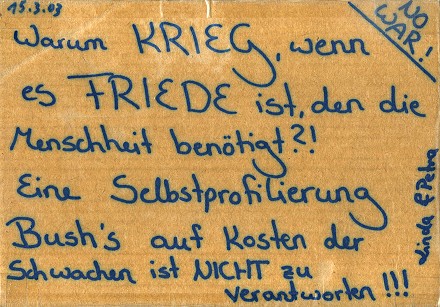 15.3.03
NO
WAR!
Warum KRIEG, wenn
es FRIEDE ist, den die
Menschheit benötigt?!
Eine Selbstprofilierung
Bush's auf Kosten der
Schwachen ist NICHT zu
verantworten!!!
Linda & Petra